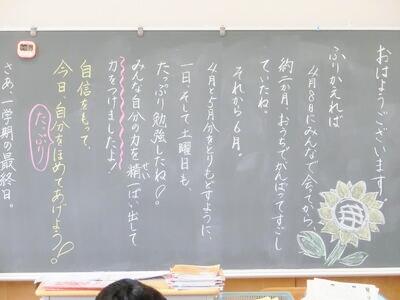 おはようございます！
ふりかえれば
4月8日にみんなで会ってから、
約一か月、おうちでがんばってすごし
ていたね。
それから6月。
4月と5月分をとりもどすように、
一日、そして土曜日も、
たっぷり勉強したね！
みんな自分の力を精一ぱい出して
せい
力をつけましたよ！
自信をもって、
今日、自分をほめてあげよう！
たっぷり
さあ、一学期の最終日。